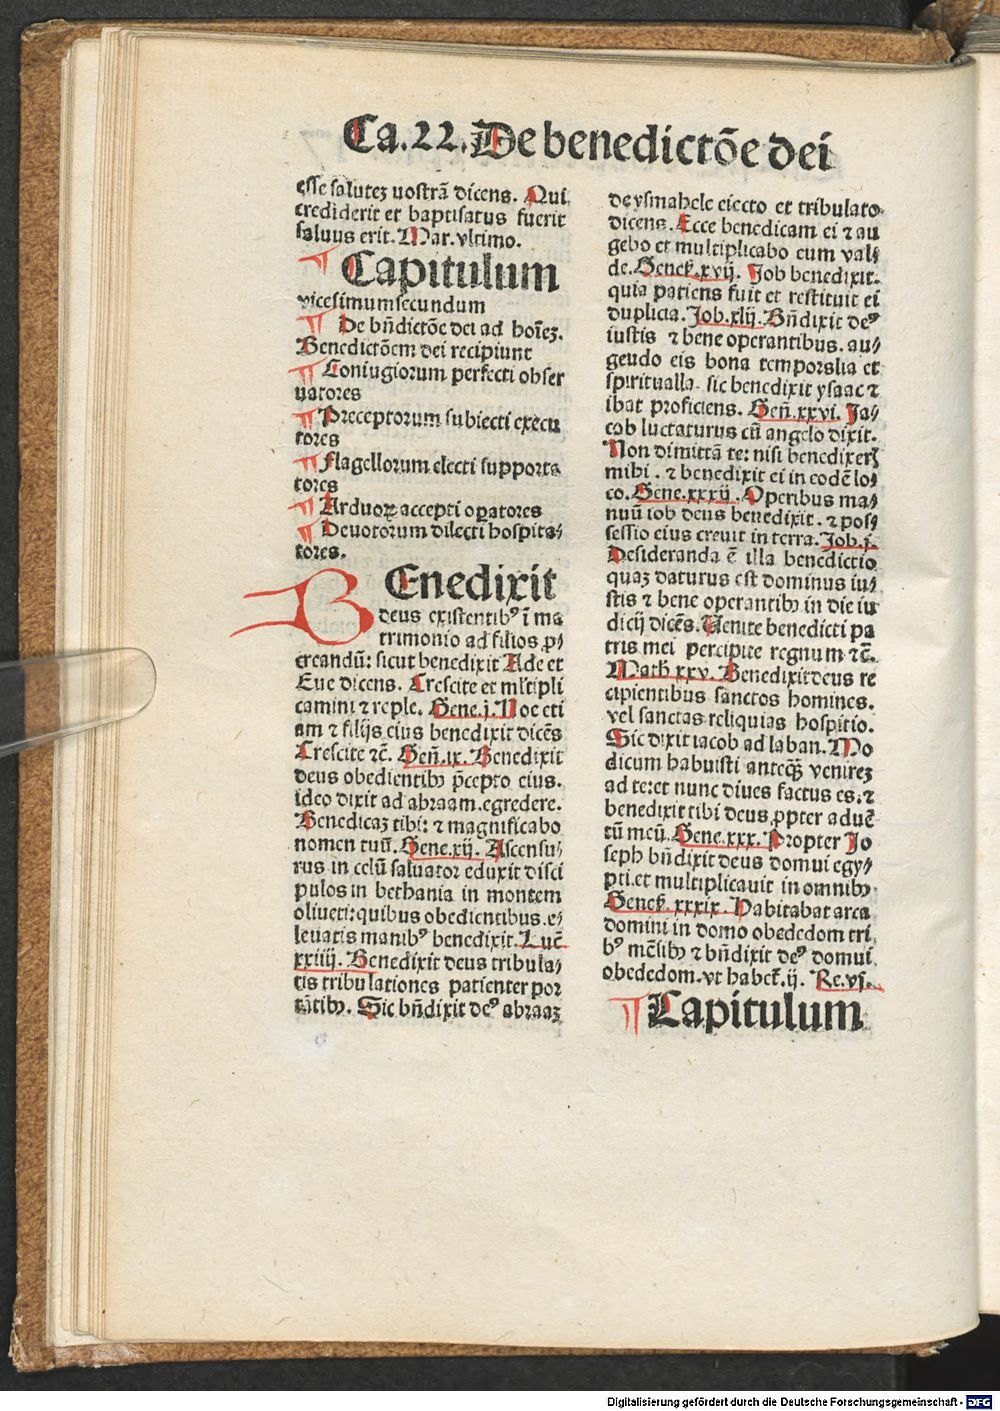 Ca.22. De benedictõe dei
esse salutez uostrã dicens. Qui
crediderit et baptisatus fuerit
saluus erit. Mar. vltimo.
¶ Capitulum
vicesimumsecundum
¶ De bñdictõe dei ad hoĩez.
Benedictõem dei recipiunt
¶ Coniugiorum perfecti obser
uatores
¶ Preceptorum subiecti execu
tores
¶ flagellorum electi supporta
tores
¶ Arduoꝝ accepti oꝑatores
¶ Deuotorum dilecti hospita⸗
tores.
BEnedixit
deus existentibꝰ ĩ ma
trimonio ad filios ꝓ
creandũ: sicut benedixit Ade et
Eue dicens. Crescite et mĺtipli
camini ⁊ reple. Gene.j. Noe eti
am ⁊ filijs eius benedixit dicẽs
Crescite ⁊c̃. Geñ.ix. Benedixit
deus obedientibꝫ p̃cepto eius.
ideo dixit ad abraam. egredere.
Benedicaz tibi: ⁊ magnificabo
nomen tuũ. Gene.xij. Ascensu⸗
rus in celũ saluator eduxit disci
pulos in bethania in montem
oliueti: quibus obedientibus. e⸗
leuatis manibꝰ benedixit. Luc̃
xxiiij. Benedixit deus tribula⸗
tis tribulationes patienter por
tãtibꝫ. Sic bñdixit deꝰ abraaz
de ysmahele eiecto et tribulato
dicens. Ecce benedicam ei ⁊ au
gebo et multiplicabo eum vali
de. Geneſ̃.xvij. Job benedixit.
quia patiens fuit et restituit ei
duplicia. Job.xlij. Bñdixit deꝰ
iustis ⁊ bene operantibus. au⸗
geudo eis bona temporslia et
spiritualla. sic benedixit ysaac ⁊
ibat proficiens. Geñ.xxvi. Ja⸗
cob luctaturus cũ angelo dixit.
Non dimittã te: nisi benedixerꝭ
mihi. ⁊ benedixit ei in eodẽ lo⸗
co. Gene.xxxij. Operibus ma⸗
nuũ iob deus benedixit. ⁊ pos⸗
sessio eius creuit in terra. Job.j.
Desideranda ẽ illa benedictio
quaz daturus est dominus iu⸗
stis ⁊ bene operantibꝫ in die iu
dicij dicẽs. Venite benedicti pa
tris mei percipite regnum ⁊c̃.
Math xxv. Benedixit deus re
cipientibus sanctos homines.
vel sanctas reliquias hospitio.
Sic dixit iacob ad laban. Mo
dicum habuisti anteqꝫ̃ venirez
ad te: et nunc diues factus es: ⁊
benedixit tibi deus ꝓpter aduẽ
tũ meũ. Gene.xxx. Propter Jo
seph bñdixit deus domui egy⸗
pti. et multiplicauit in omnibꝫ
Geneſ̃.xxxix. Habitabat arca
domini in domo obededom tri
bꝰ mẽsibꝫ ⁊ bñdixit deꝰ domui
obededom. vt habet̃.ij. Re.vj.
¶ Capitulum
Digitalisierung gefördert durch die Deutsche Forschungsgemeinschaft - DFG